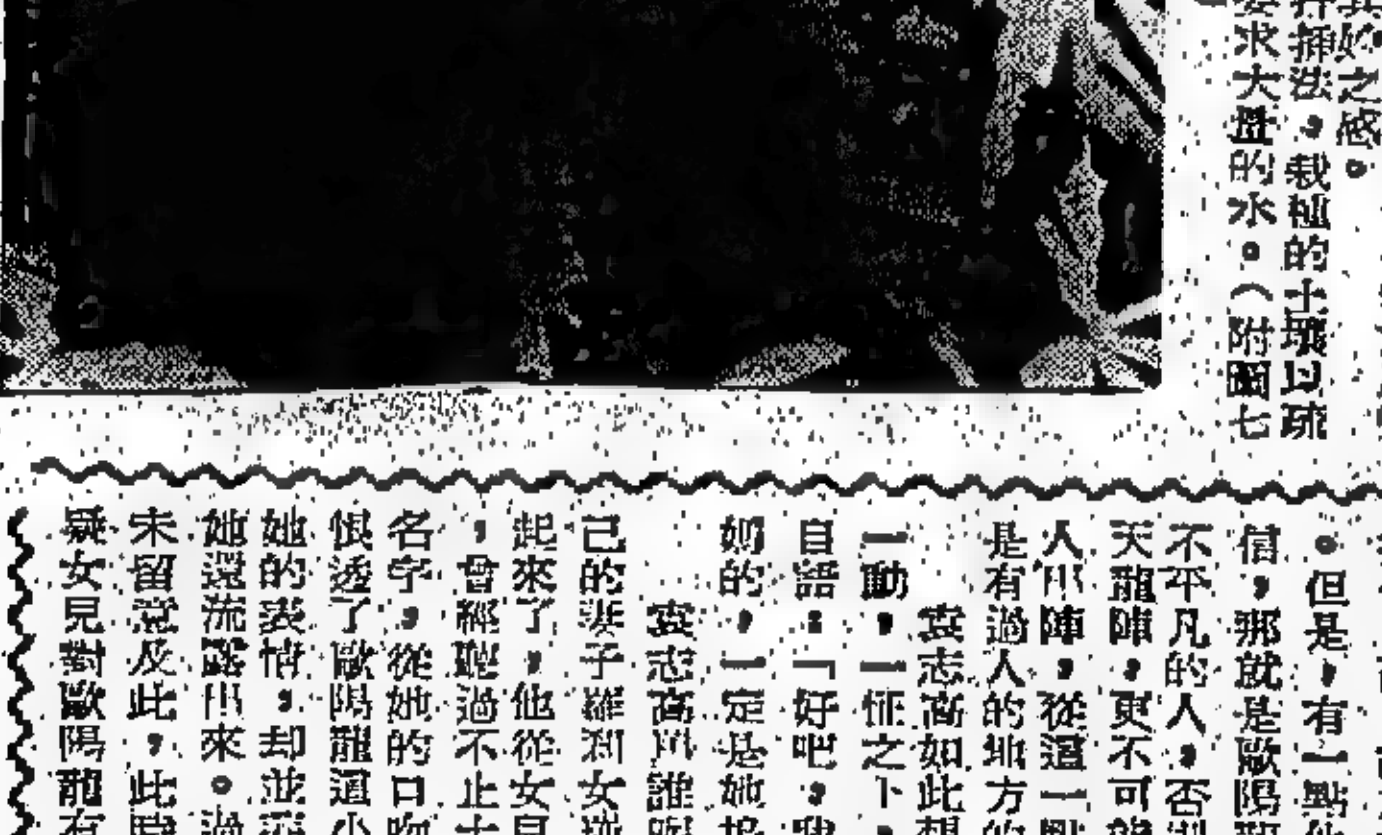 其妙之感。
扦插法，栽種的土壤以疏
要求大量的水。（附圖七
。但是，有一點
信，那就是歐陽
不平凡的人，否則
天龍陣，更不可能
人出陣，從這一點
是有過人的地方的
袁志高如此想
一動，一怔之下，
自語：「好吧，我
她的，一定是她
袁志高與誰
己的妻子羅刹女
起來了，他從女兒
，曾經聽過不止十
名字，從她的口吻
恨透了歐陽龍這小
她的表情，却並
她還流露出來。過
未留意及此，此時
疑女兒對歐陽龍有